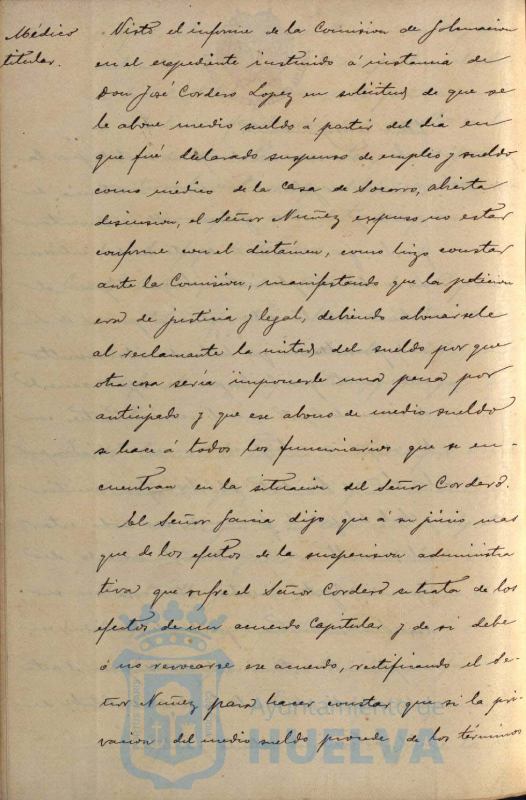 Médico
titular.
Visto el informe de la Comision de Gobernacion
en el expediente instruido á instancia de
Don José Cordero Lopez en solicitud de que se
le abone medio sueldo á partir del dia en
que fué declarado suspenso de empleo y sueldo
como médico de la Casa de Socorro, abierta
discusion, el Señor Nuñez expuso no estar
conforme con el dictámen, como hizo constar
ante la Comisión, manifestando que la peticion
era de justicia y legal, debiendo abonársele
al reclamante la mitad del sueldo por que
otra cosa sería imponerle una pena por
anticipado y que ese abono de medio sueldo
se hace á todos los funcionarios que se en-
cuentran en la situacion del Señor Cordero.
El Señor Garcia dijo que á su juicio mas
que de los efectos de la suspension administra
tiva que sufre el Señor Cordero se trata de los
efectos de un acuerdo Capitular y de si debe
ó no revocarse ese acuerdo, rectificando el Se-
ñor Nuñez para hacer constar que si la pri-
vacion del medio sueldo procede de los términos
Ayuntamiento de
HUELVA